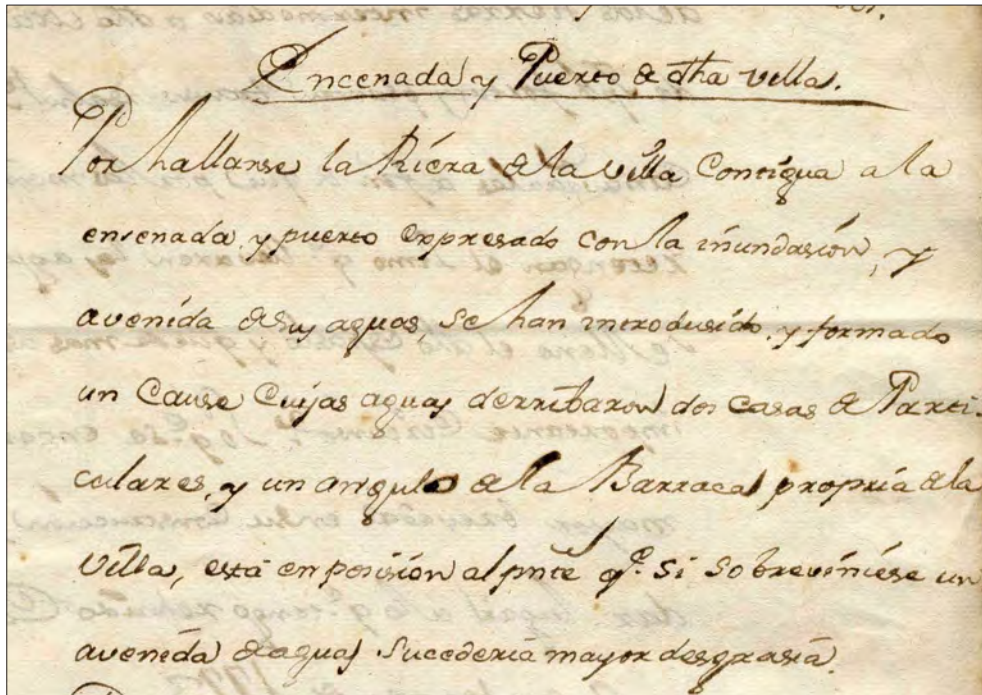 Encenada y Puerto de dha villa.
Por hallarse la Riera de la villa Contigua a la
ensenada y puerto expresado con la inundasión, y
avenida de sus aguas, se han introdusido, y formado
un Cause Cuyas aguas derribaron dos casas de Parti-
culares, y un angulo de la Barraca propria de la
villa, está en posisión al pnte q.e si sobreviniese un
avenida de aguas sucederia mayor desgrasia.